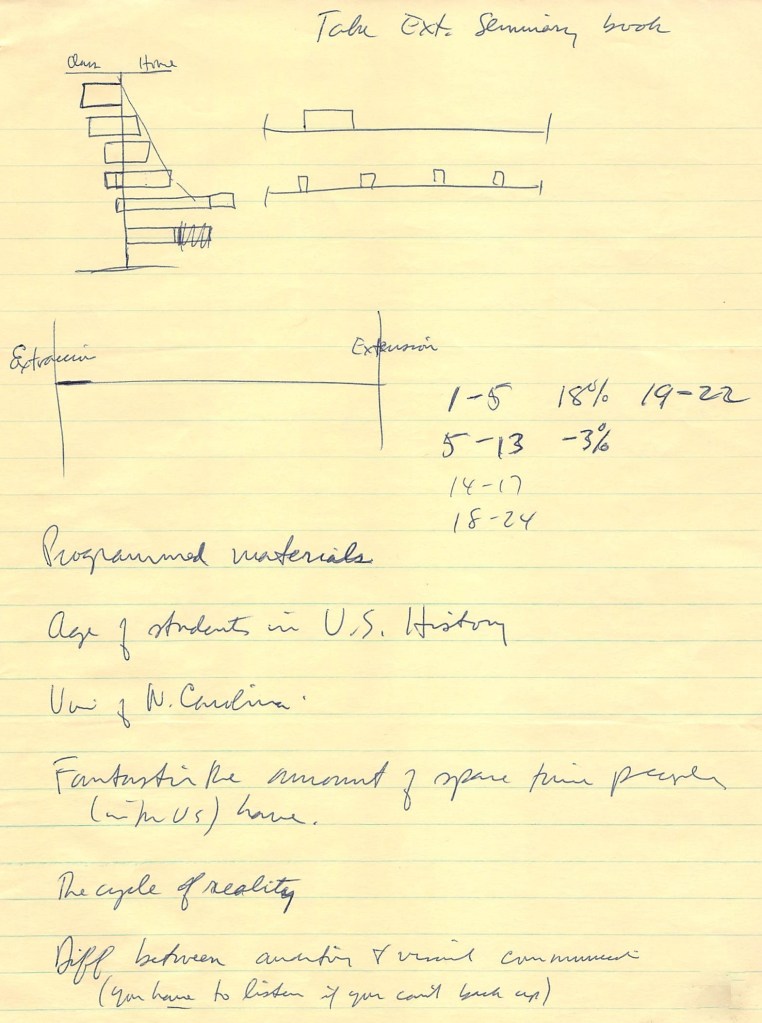 Take Ext. Seminary book
Class Home
Extraction Extension
1-5 18% 19-22
5-13 -3%
14-17
18-24
Programmed materials
Age of students in U.S. History
Uni of N. Carolina.
Fantastic the amount of spare time people
(in the US) have.
The cycle of reality
Diff between & visual
(you have to listen if you can't back up)